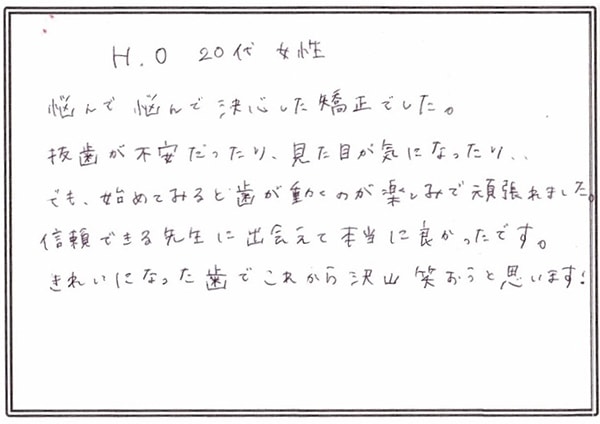 H.O 20代 女性
悩んで悩んで決心した矯正でした。
抜歯が不安だったり、見た目が気になったり、、
でも、始めてみると歯が動くのが楽しみで頑張れました。
信頼できる先生に出会えて本当に良かったです。
きれいになった歯でこれから沢山笑おうと思います!